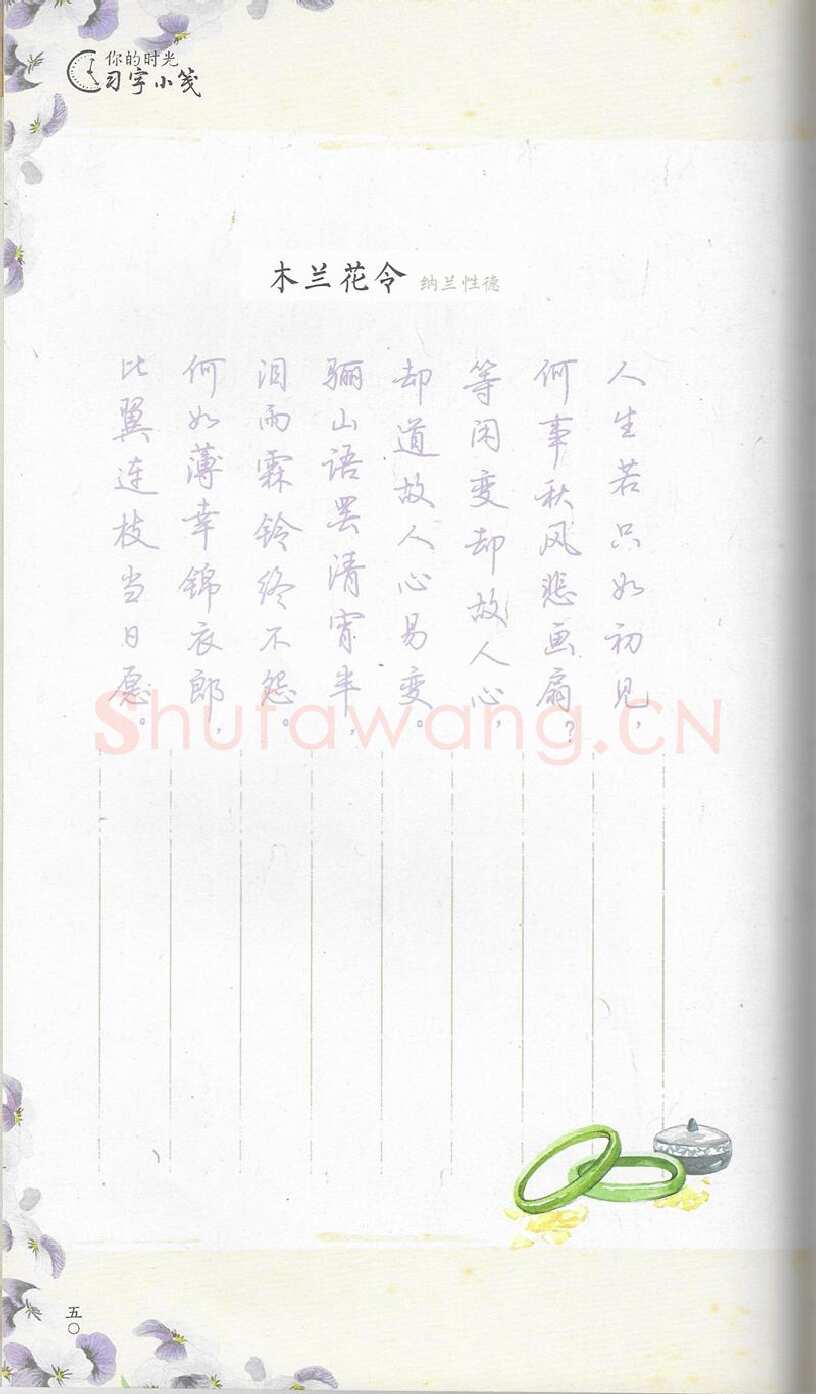 你的时光
习字小笺
木兰花令 纳兰性德
人生若只如初见，
何事秋风悲画扇？
等闲变却故人心，
却道故人心易变。
骊山语罢清宵半，
泪雨霖铃终不怨。
何如薄幸锦衣郎，
比翼连枝当日愿。
Shufawang.CN
五〇